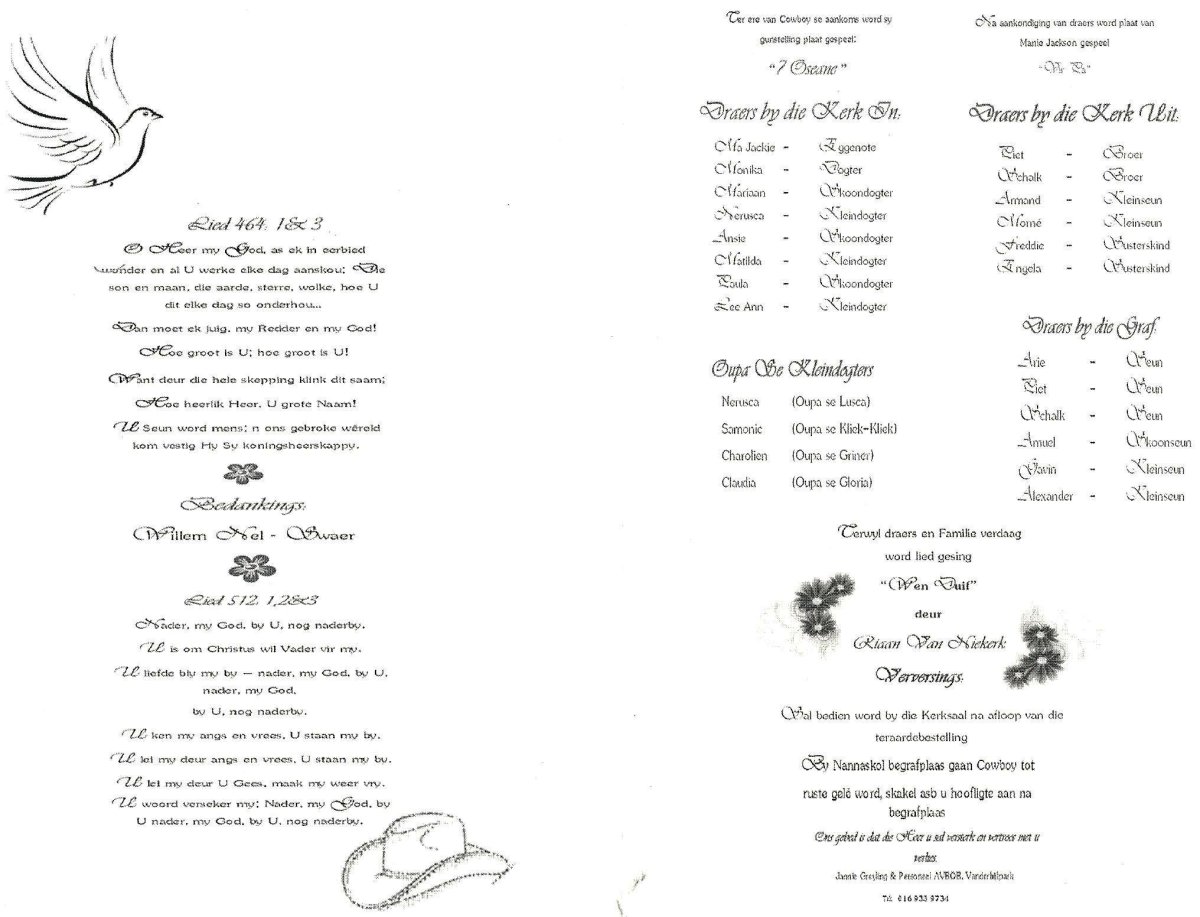 Lied 464: 1& 3
O Heer my God, as ek in eerbied
wonder en al U werke elke dag aanskou: Die
son en maan, die aarde, sterre, wolke, hoe U
dit elke dag so onderhou...
Dan moet ek juig, my Redder en my God!
Hoe groot is U; hoe groot is U!
Want deur die hele skepping klink dit saam:
Hoe heerlik Heer, U grote Naam!
U Seun word mens; n ons gebroke wêreld
kom vestig Hy Sy koningsheerskappy.
Bedankings:
Willem Nel - Swaer
Lied 512: 1,2&3
Nader, my God, by U, nog naderby.
U is om Christus wil Vader vir my.
U liefde bly my by – nader, my God, by U,
nader, my God,
by U, nog naderby.
U ken my angs en vrees, U staan my by.
U lei my deur angs en vrees, U staan my by.
U lei my deur U Gees, maak my weer vry.
U woord verseker my: Nader, my God, by
U nader, my God, by U, nog naderby.
Ter ere van Cowboy se aankoms word sy
gunstelling plaat gespeel:
"7 Oseane"
Draers by die Kerk In:
Ma Jackie - Eggenote
Monika - Dogter
Mariaan - Skoondogter
Nerusca - Kleindogter
Ansie - Skoondogter
Matilda - Kleindogter
Paula - Skoondogter
Lee Ann - Kleindogter
Oupa Se Kleindogters
Nerusca (Oupa se Lusca)
Samonic (Oupa se Kliek-Kliek)
Charolien (Oupa se Griner)
Claudia (Oupa se Gloria)
Na aankondiging van draers word plaat van
Manie Jackson gespeel
"Vir Pa"
Draers by die Kerk Uit:
Piet - Broer
Schalk - Broer
Armand - Kleinseun
Momé - Kleinseun
Freddie - Susterskind
Engela - Susterskind
Draers by die Graf:
Arie - Seun
Piet - Seun
Schalk - Seun
Amuel - Skoonseun
Gavin - Kleinseun
Alexander - Kleinseun
Terwyl draers en Familie verdaag
word lied gesing
"Wen Duif"
deur
Riaan Van Niekerk
Verversings:
Sal bedien word by die Kerksaal na afloop van die
teraardebestelling
By Nannaskol begrafplaas gaan Cowboy tot
ruste gelê word, skakel asb u hoofligte aan na
begrafplaas
Ons gebed is dat die Heer u sal versterk en vertroos met u
verlies.
Jannie Greyling & Personeel AVBOB, Vanderbijlpark
Tel: 016 933 9734